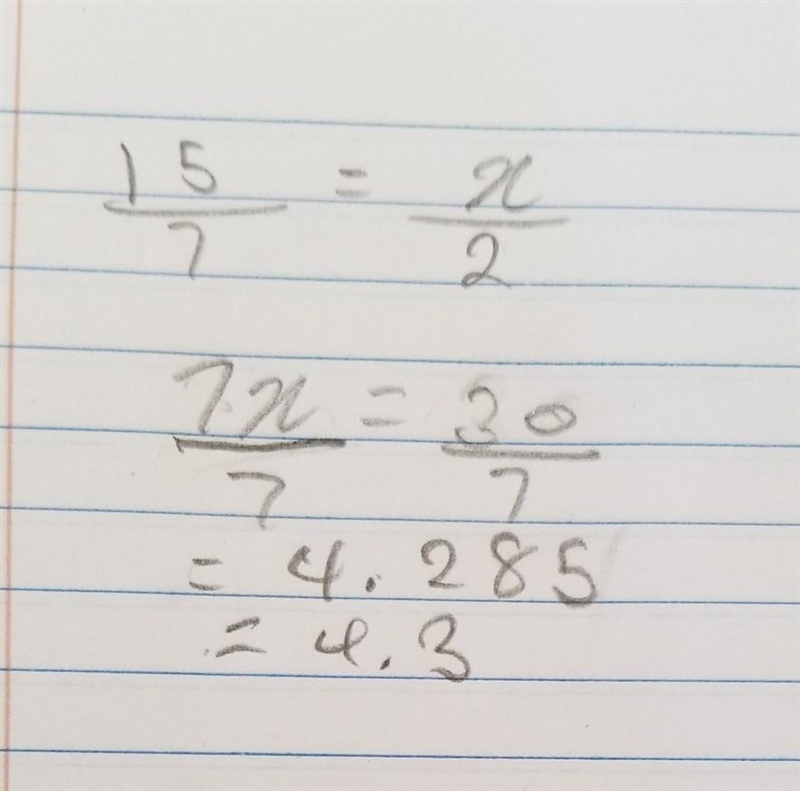 15/7 = x/2
7x/7 = 30/7
= 4.285
= 4.3